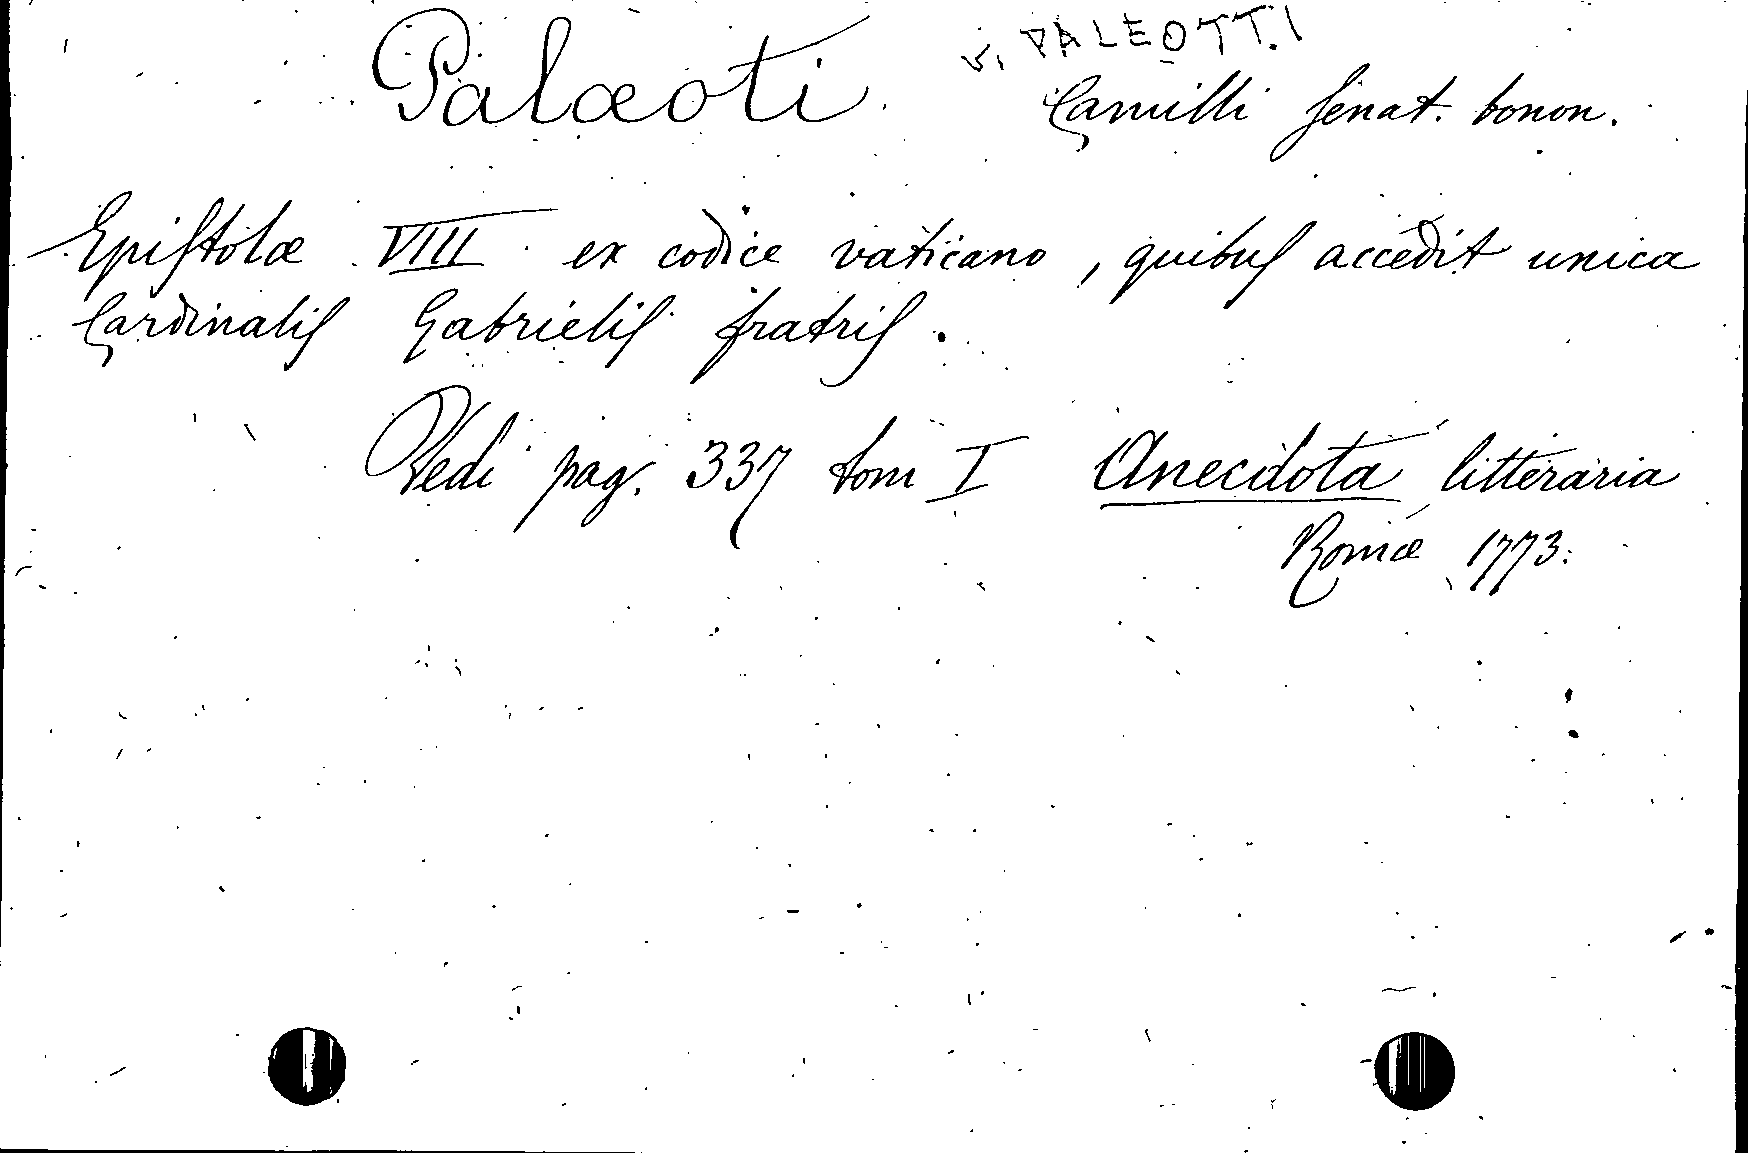 v. PALEOTTI
Palæoti Camilli senat. bonon.
Epistolæ VIII ex codice vaticano, quibus accedit unica
Cardinalis Gabrielis fratris.
Vedi pag. 337 tom I Anecdota litteraria
Romæ 1773.